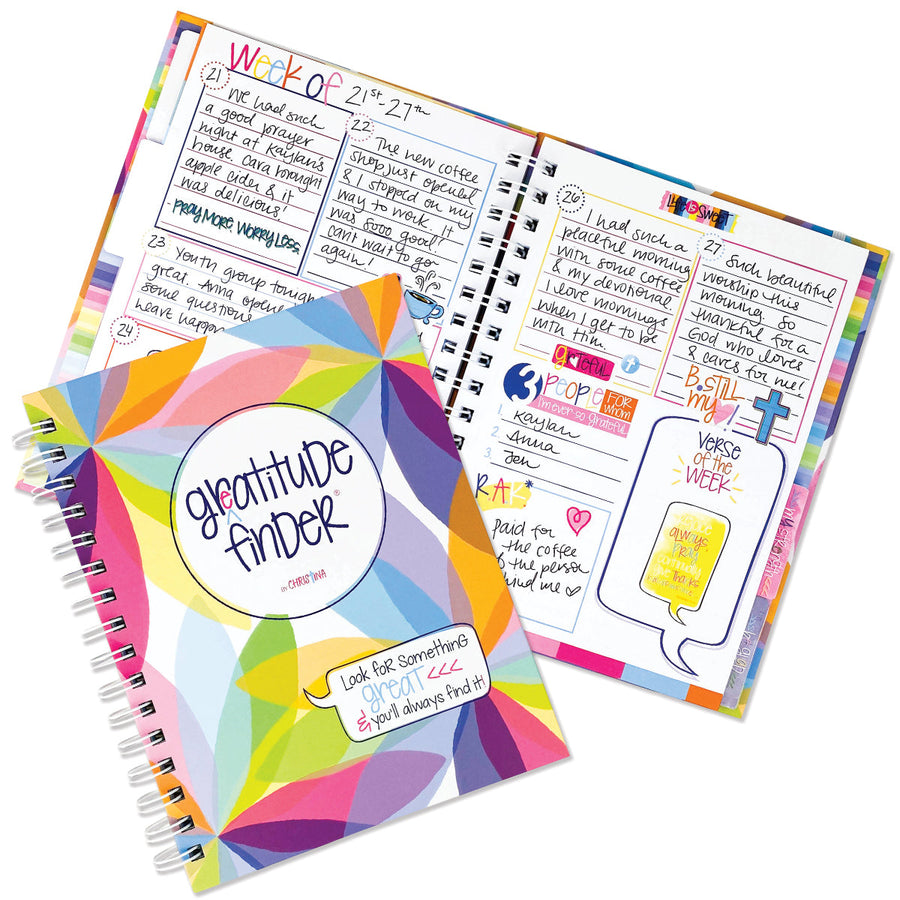 Week of 21st-27th
21
We had such
a good prayer
night at Kaylan's
house. Cara brought
apple cider & it
was delicious!
PRAY MORE, WORRY LESS.
22
The new coffee
shop just opened
& I stopped on my
way to work. It
was sooo good!
can't wait to go
again!
23
Youth group tonight
great. Anna opene
some questions
heart happ
24
26
I had such a
peaceful morning
with some coffee
& my devotional
I love mornings
when I get to be
with Him.
grateful
LIFE IS SWEET
27
Such beautiful
worship this
morning. So
thankful for a
God who loves
& cares for me!
B. STILL
my!
3 PEOPLE FOR whom
I'm ever-so-grateful
1. Kaylan
2. Anna
3. Jen
R.A.K*
Paid for
the coffee
of the person
hind me
VERSE
OF the
WEEK
always,
pray
continually
give thanks
greatitude
finder®
by CHRISTINA
Look for something
great <<<
& you'll always find it!